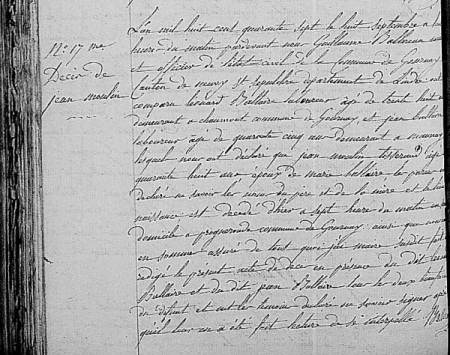 N.o 17 me
Décès de
jean moulin
L'an mil huit cent quarante sept le huit septembre à
heure du matin pardevant nous Guillaume Ballereau
et officier de l'état civil de la Commune de Gournay
Canton de neuvy st sepulchre département de l'indre est
comparu léonard Ballaire laboureur âgé de trente huit
demeurant à chaumont commune de Gournay, et jean Ballaire
laboureur âgé de quarante cinq ans demeurant à
lesquels nous ont déclaré que jean moulin tisserand âgé
quarante huit ans époux de marie ballaire
déclaré ne savoir les noms du père et de la mère et le lieu
naissance est décédé d'hier à sept heure du matin en
domicile à commune de Gournay ainsi que nous
en sommes assuré de tout quoi je maire susdit fait
redigé le présent acte de décès en présence du dit
Ballaire et du dit jean Ballaire tous les deux
du défunt et ont les témoins déclaré ne savoir signer
qu'il leur en a été fait lecture de ce interpellé